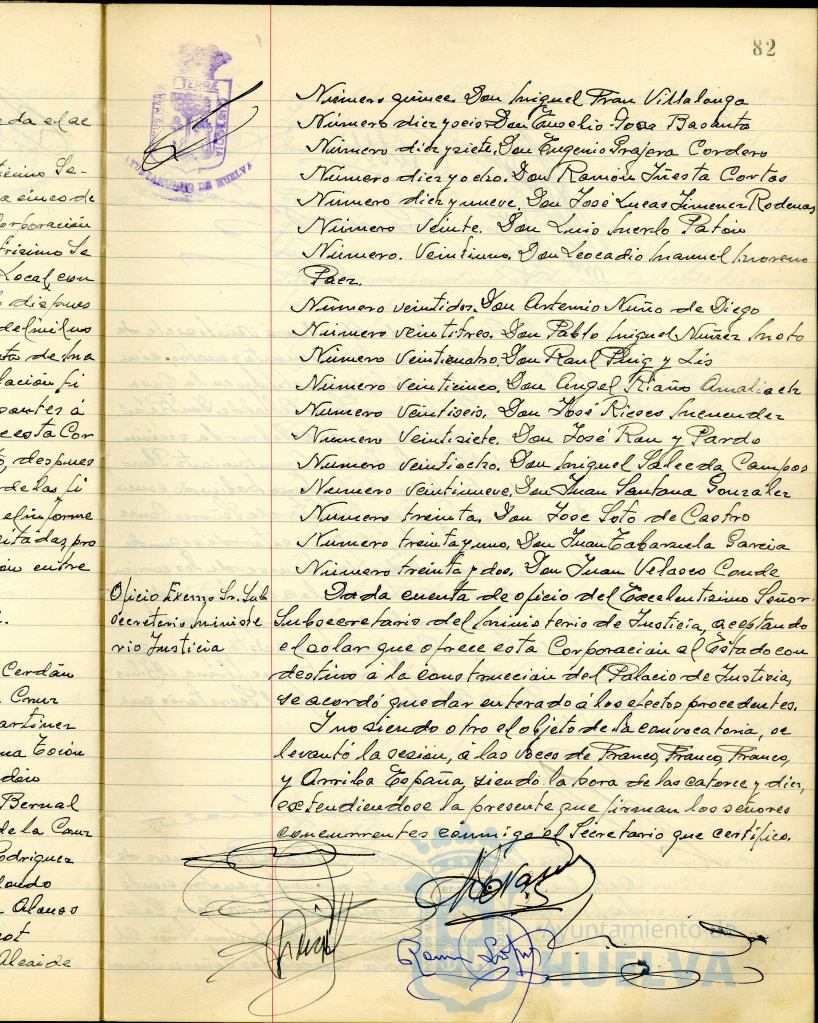 82
da el ac
Número quince. Don Miguel Frau Villalonga
Número diez y seis. Don Eusebio Basanta
Número diez y siete. Don Eugenio Prajera Cordero
Número diez y ocho. Don Ramón Iñesta Cortas
Número diez y nueve. Don José Lucas Jimenez Rodenas
Número veinte. Don Luis Merlo Patón
Número. Veintiuno. Don Leocadio Manuel Moreno
Paez.
Número veintidos. Don Artemio Nuño de Diego
Número veintitres. Don Pablo Miguel Nuñez Moto
Número veinticuatro. Don Raul Puig y Lis
Número veinticinco. Don Angel Riaño
Número veintiseis. Don José Rieves Menendez
Número veintisiete. Don José Rau y Pardo
Número veintiocho. Don Miguel Salceda Campos
Número veintinueve. Don Juan Santana González
Número treinta. Don Jose Soto de Castro
Número treinta y uno. Don Juan Tabarzuela Garcia
Número treinta y dos. Don Juan Velasco Conde
Oficio Excmo Sr. Sub
secretario ministe
rio Justicia
Dada cuenta de oficio del Excelentisimo Señor
Subsecretario del Ministerio de Justicia, aceptando
el solar que ofrece esta Corporacion al Estado con
destino á la construccion del Palacio de Justicia,
se acordó quedar enterado á los efectos procedentes.
Y no siendo otro el objeto de la convocatoria, se
levantó la sesión, á las voces de Franco, Franco, Franco,
y Arriba España, siendo la hora de las catorce y diez,
extendiendose la presente que firman los señores
concurrentes conmigo el Secretario que certifico.
ticimo Se-
a cinco de
orporación
trisimo Se
Local con
dispues
ta de Ma
lación fi
santes á
e esta Cor
o, despues
de las fi
el informe
citadas, pro
ón entre
Cerdán
Cruz
artinez
Bernal
de la Cruz
Rodriguez
Alonso
Alcaide
TERRÆ
CUSTODIA
AYUNTAMIENTO DE HUELVA
Ayuntamiento de
HUELVA